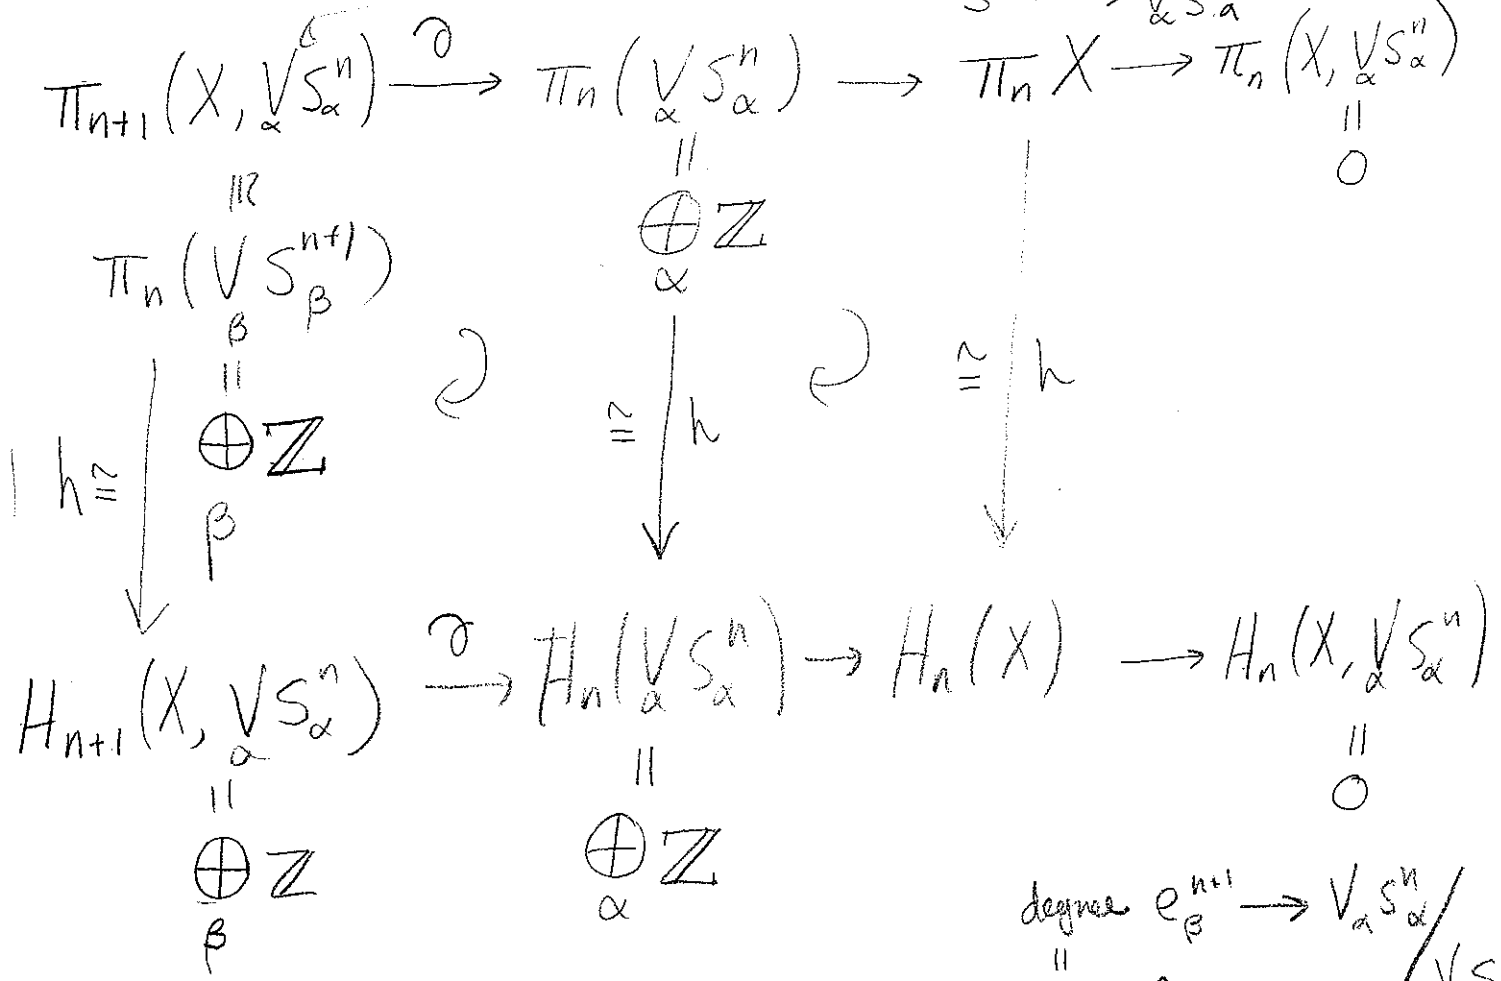 S → ⋁_α S_α
π_{n+1}(X, ⋁_α S^n_α) —∂→ π_n(⋁_α S^n_α) → π_n X → π_n(X, ⋁_α S^n_α)
≅ = =
π_n(⋁_β S^{n+1}_β) ⊕_α ℤ 0
=
h ≅ ⊕_β ℤ ≅ h ≅ h
H_{n+1}(X, ⋁_α S^n_α) —∂→ H_n(⋁_α S^n_α) → H_n(X) → H_n(X, ⋁_α S^n_α)
= = =
⊕_β ℤ ⊕_α ℤ 0
degree e^{n+1}_β → ⋁_α S^n_α / ⋁ S
=